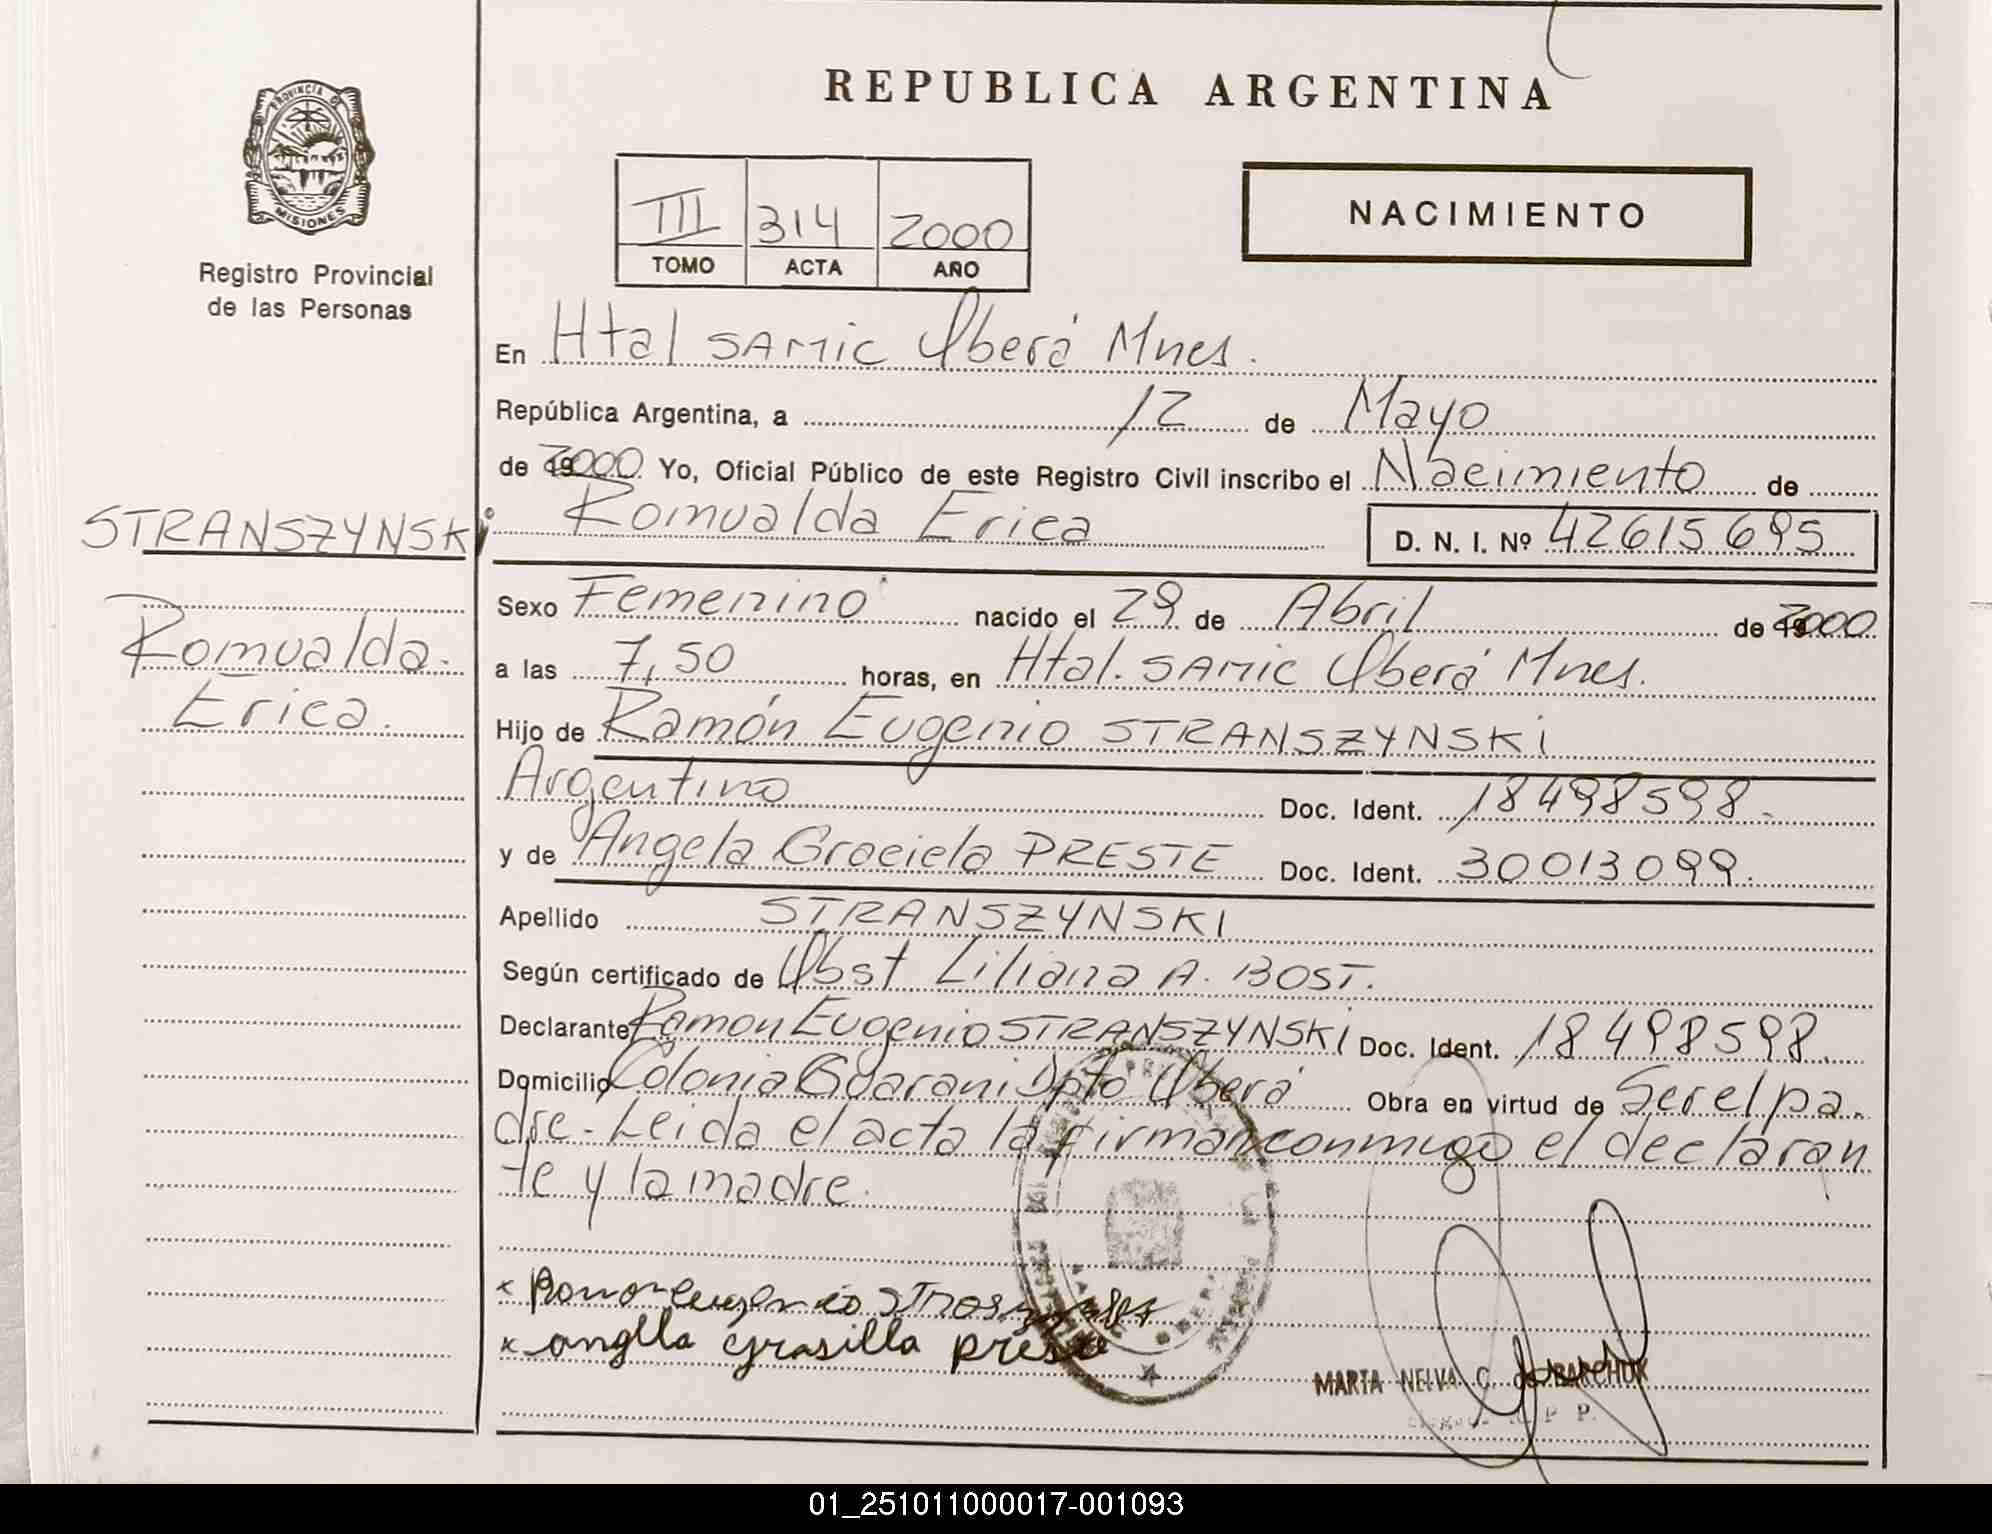 REPUBLICA ARGENTINA
PROVINCIA DE
MISIONES
Registro Provincial
de las Personas
III 314 2000
TOMO ACTA AÑO
NACIMIENTO
En Htal SAMIC Oberá Mnes.
República Argentina, a 12 de Mayo
de 2000 Yo, Oficial Público de este Registro Civil inscribo el Nacimiento de
STRANSZYNSKi
Romualda Erica D. N. I. Nº 42615695
Romualda
Erica.
Sexo Femenino nacido el 29 de Abril de 2000
a las 7,50 horas, en Htal. SAMIC Oberá Mnes.
Hijo de Ramón Eugenio STRANSZYNSKi
Argentino Doc. Ident. 18498598.
y de Angela Graciela PRESTE Doc. Ident. 30013099.
Apellido STRANSZYNSKI
Según certificado de Obst Liliana A. BOST.
Declarante Ramon Eugenio STRANSZYNSKI Doc. Ident. 18498598.
Domicilio Colonia Guarani Dpto Oberá Obra en virtud de Ser el pa-
dre- Leida el acta la firman conmigo el declaran
te y la madre.
x anglla grasilla preste
MARTA NELVA C. de BARCHUK
01_251011000017-001093